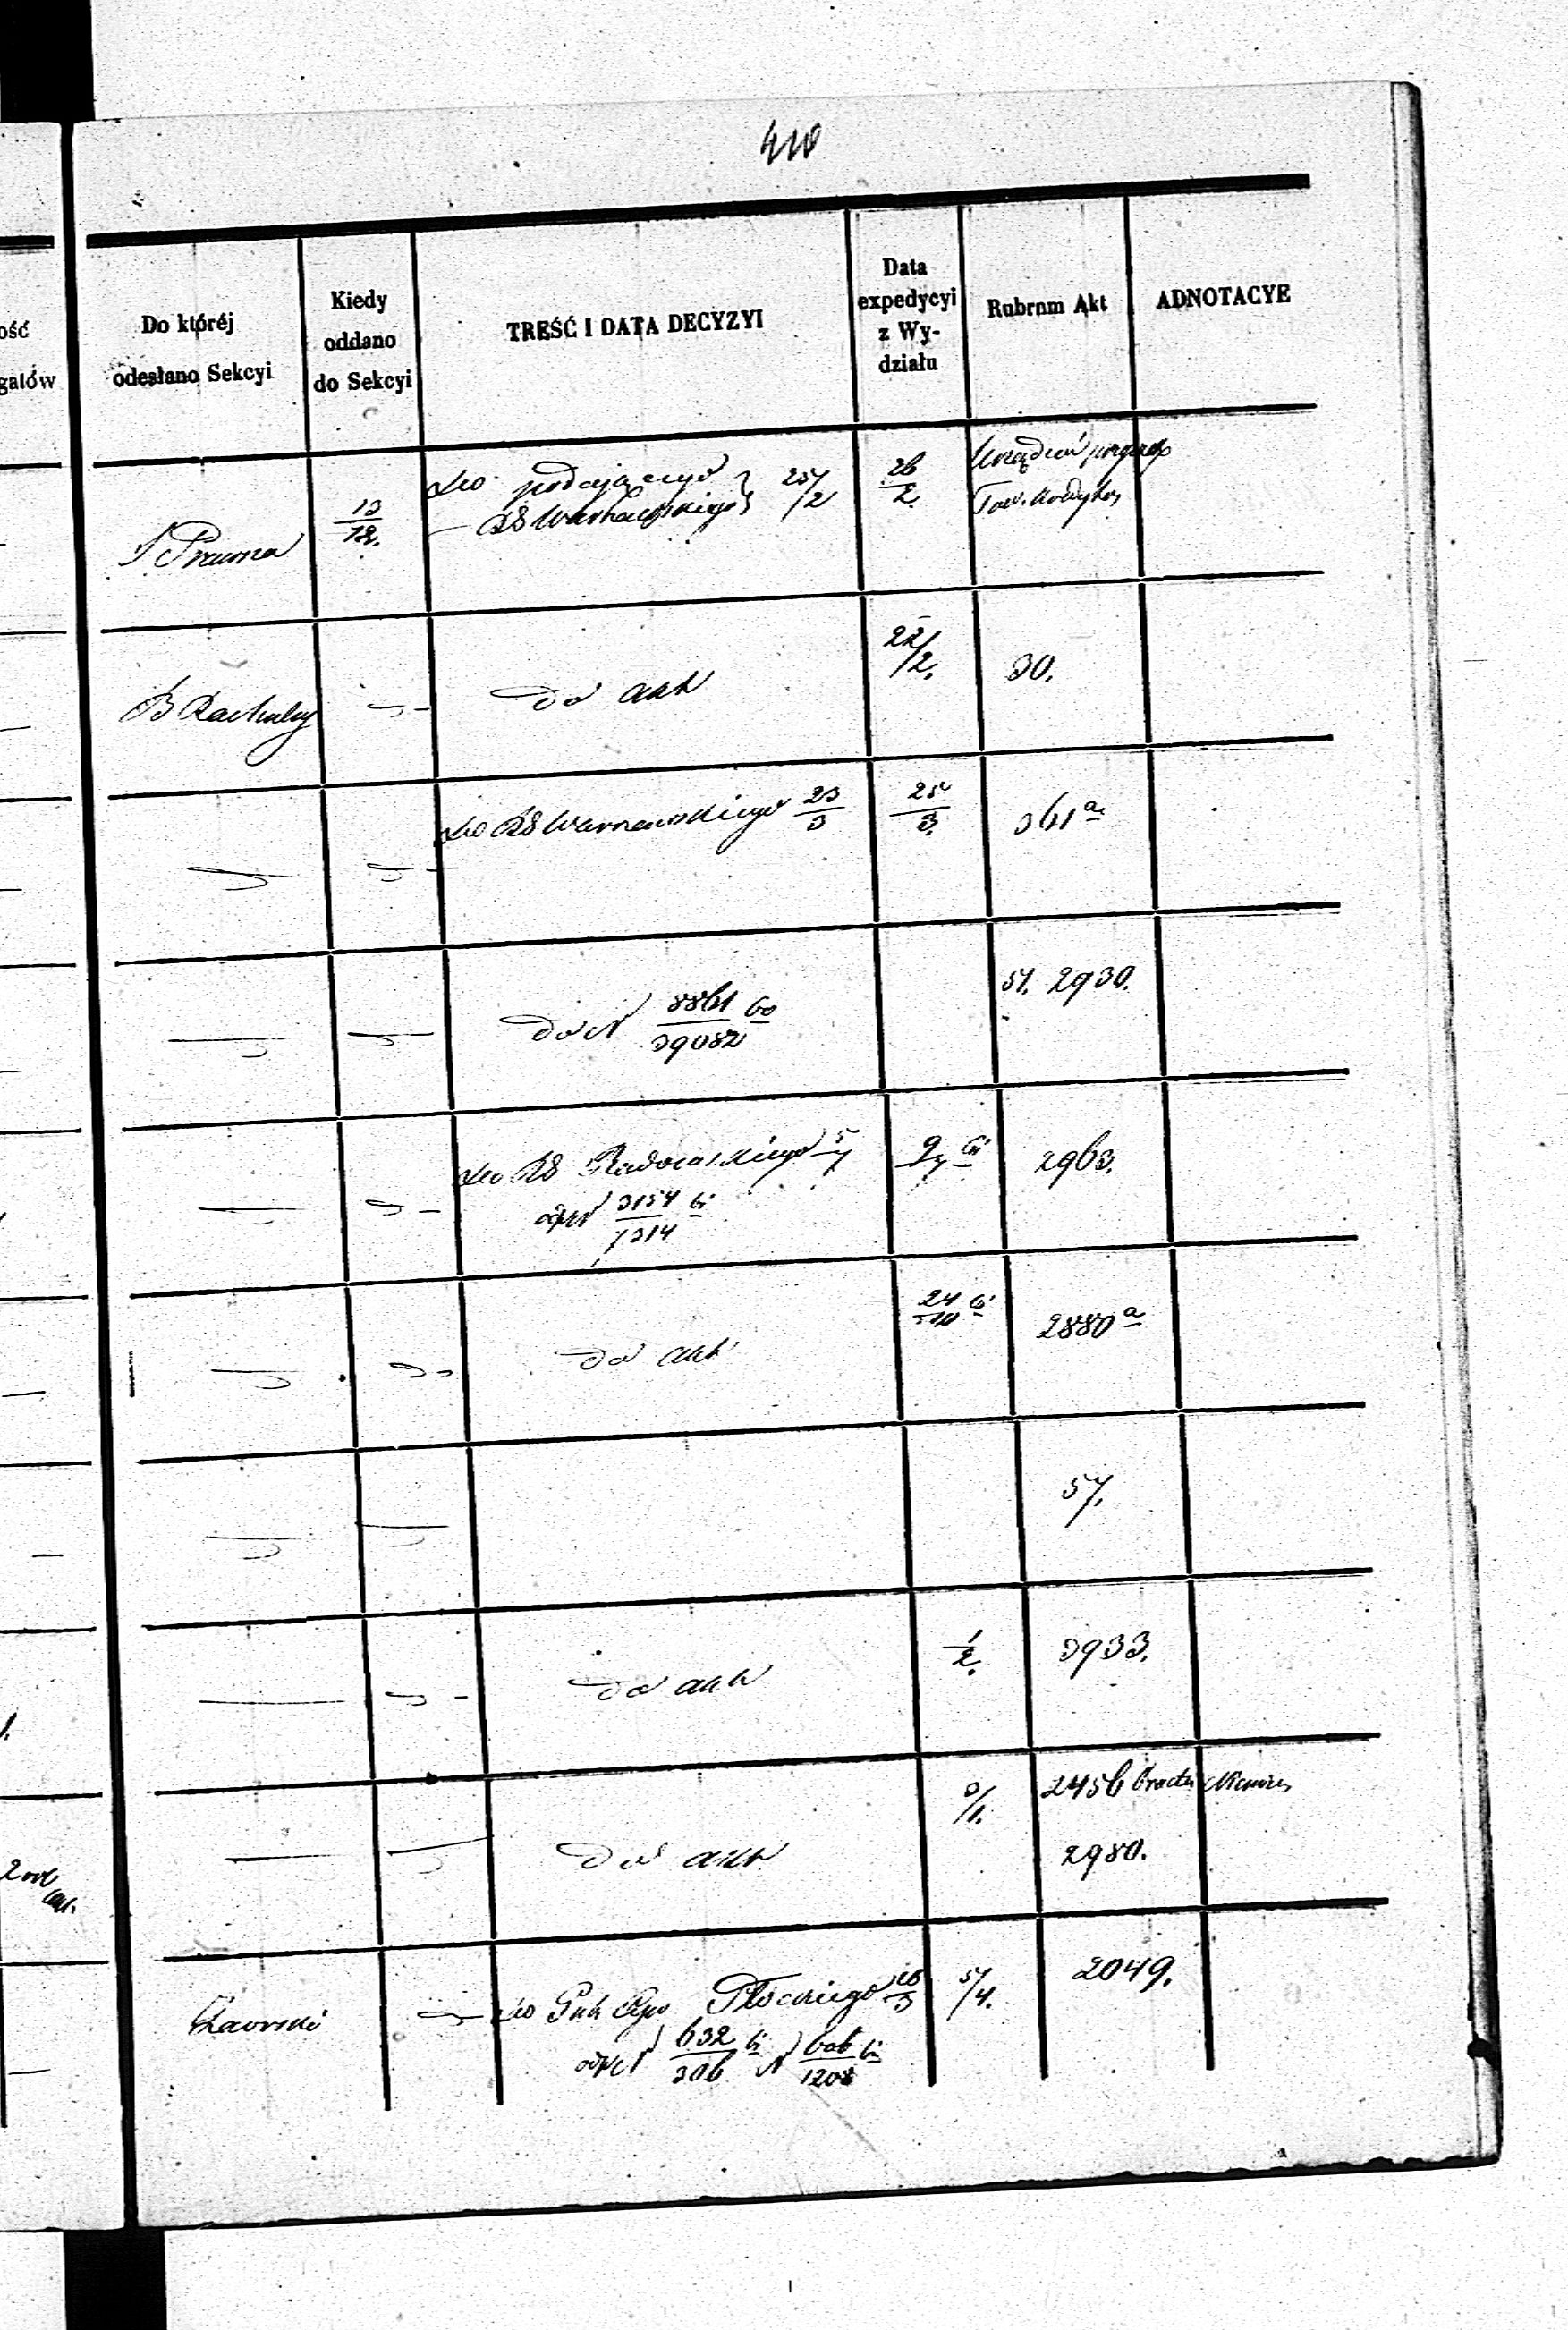 410
ość
gatów
Do któréj
odesłano Sekcyi
Kiedy
oddano
do Sekcyi
TREŚĆ I DATA DECYZYI
Data
expedycyi
z Wy-
działu
Rubrnm Akt
ADNOTACYE
S Prawna
13/12.
Do podającego
— RS Warszawskiego
26/2
Tow. Kredytow
do akt
22/2.
30.
Do RS Warszawskiego 23/3
25/3.
361 a
do N 8861/39082 60
51. 2930.
Do RS Radomskiego 5/7
odp N 3154/7314 61
9/7 61
2963.
do akt
24/10 61
2880 a
57.
do akt
1/2.
3933.
do akt
3/1.
2456
2980.
2 od
Do Gub Cyw Płockiego 26/3
odp N 632/306 61 N 606/1208 61
5/4.
2049.